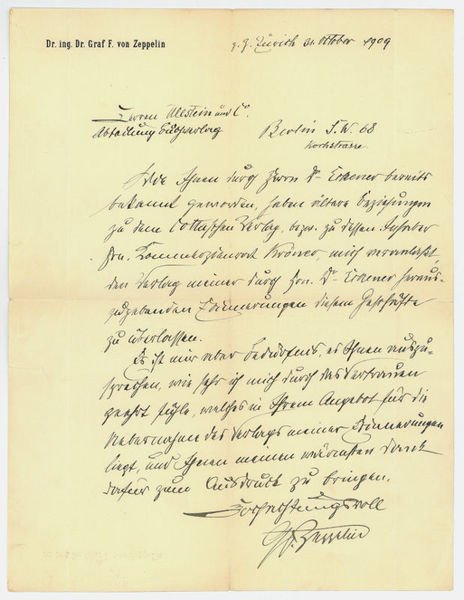 Dr. ing. Dr. Graf F. von Zeppelin
z. Z. Zürich 31. October 1909
Herren Ullstein und Co
Abteilung Buchverlag
Berlin S.W. 68
Kochstrasse.
Wie Ihnen durch Herrn Dr Eckener bereits
bekannt geworden, haben ältere Beziehungen
zu dem Cotta'schen Verlag, bezw. zu dessen Inhaber
Hrn. Kommerzienrat Kröner, mich veranlasst,
den Verlag meiner durch Hrn. Dr Eckener heraus-
zugebenden Erinnerungen diesem Geschäfte
zu überlassen.
Es ist mir aber Bedürfnis, es Ihnen auszu-
sprechen, wie sehr ich mich durch das Vertrauen
geehrt fühle, welches in Ihrem Angebot für die
Uebernahme des Verlags meiner Erinnerungen
liegt, und Ihnen meinen wärmsten Dank
dafür zum Ausdruck zu bringen.
Hochachtungsvoll
Gf. Zeppelin